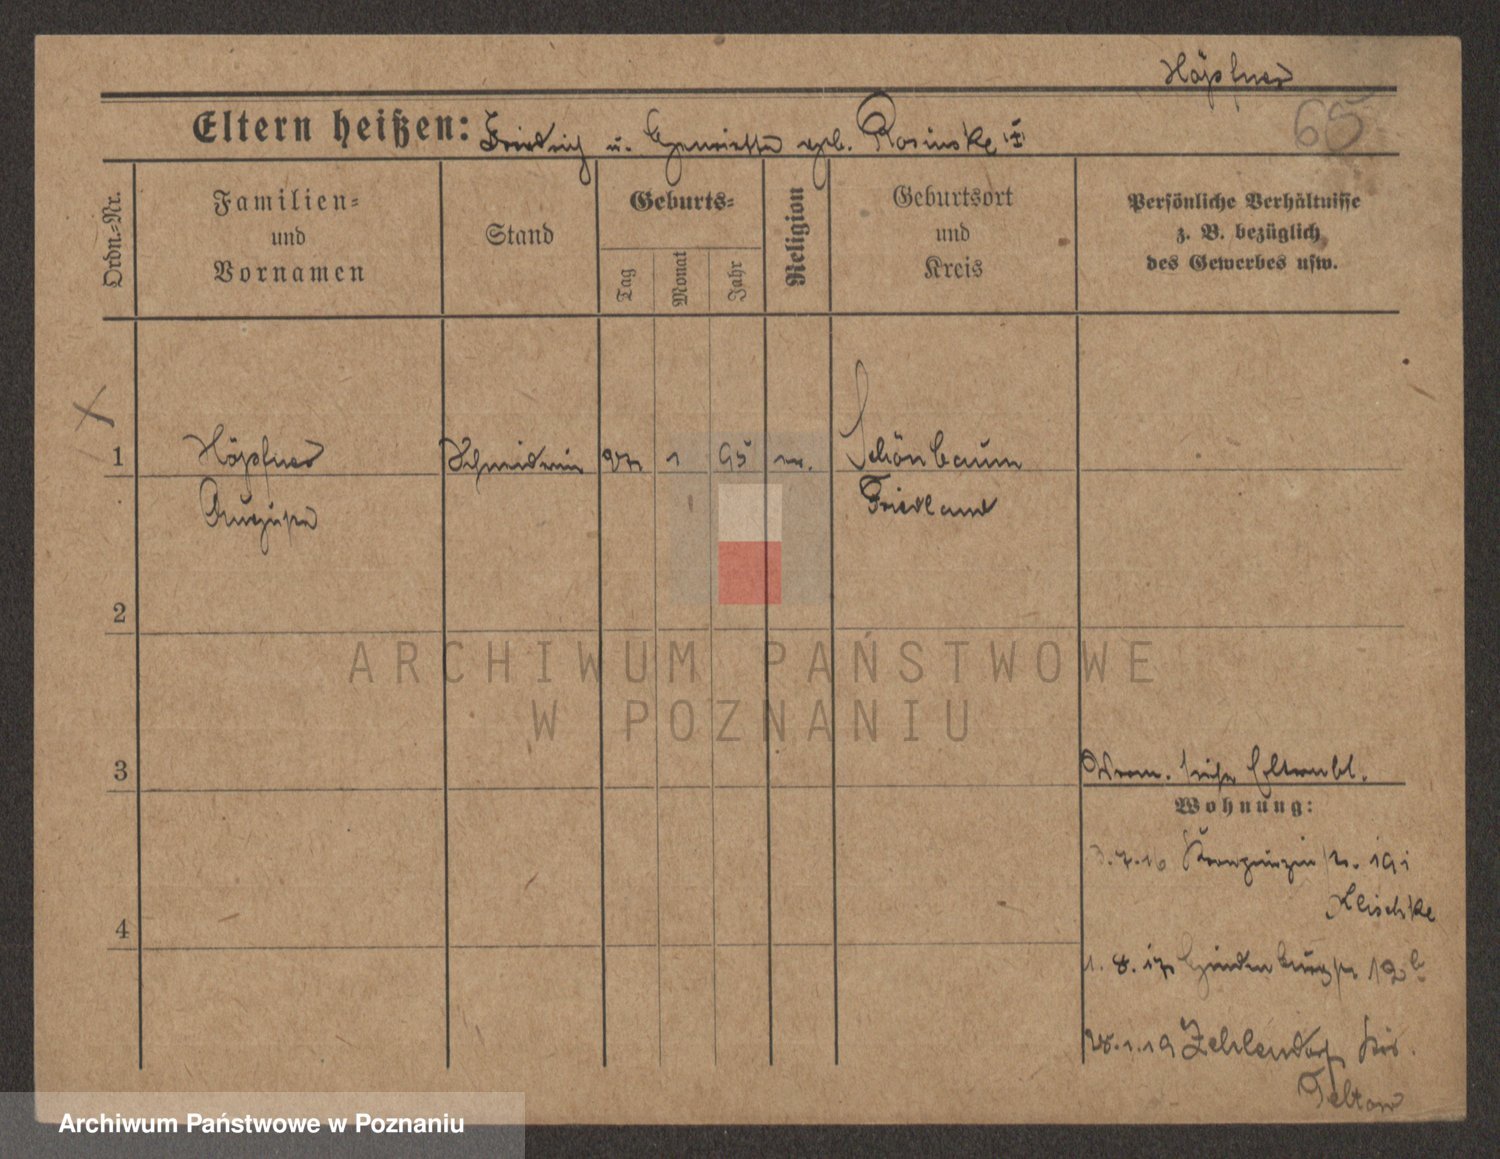 Höpfner
65
Eltern heißen: Friedrich u. Henriette geb. Rosinske
Ordn.-Nr.
Familien-
und
Vornamen
Stand
Geburts-
Tag
Monat
Jahr
Religion
Geburtsort
und
Kreis
Persönliche Verhältnisse
z. B. bezüglich
des Gewerbes usw.
1 Höpfner Schneiderin 27 1 95 ev. Schönbaum
Auguste Friedland
2
3
siehe Elternbl.
Wohnung:
3.7.16 Kronprinzenstr. 191
Kleischke
4
1.8.17 Hindenburgstr. 12b
28.1.19 Zehlendorf Krs.
Teltow
ARCHIWUM PAŃSTWOWE
W POZNANIU
Archiwum Państwowe w Poznaniu